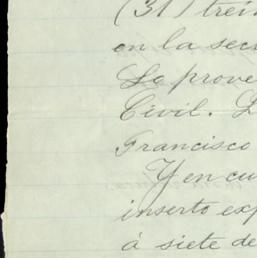 (31) trein
en la secr
Lo prove
Civil. L
Francisco
Y en cu
inserto exp
á siete de